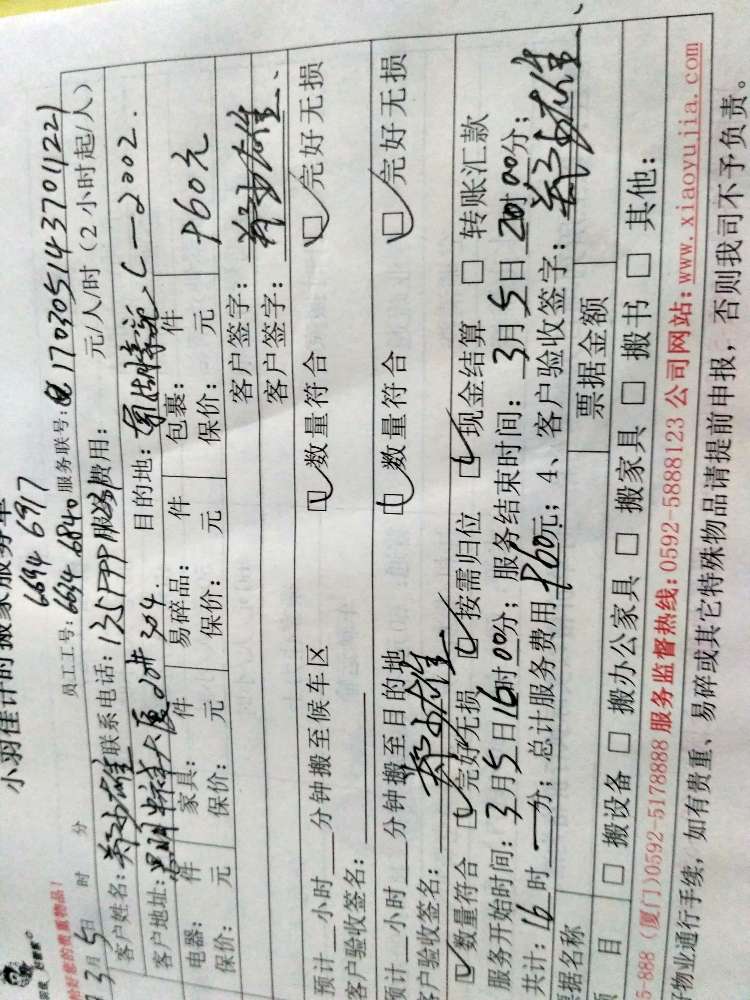 小羽佳计时搬家服务单
6694 6917
员工工号: 6634 6840 服务联号: 170305143701221
3月5日 时 分
元/人/时 (2小时起/人)
客户姓名: 联系电话: 服务费用:
客户地址: 304 目的地: C-2002.
电器: 件 家具: 件 易碎品: 件 包裹: 件
保价: 元 保价: 元 保价: 元 保价: 元 960元
客户签字:
客户签字:
预计__小时__分钟搬至候车区 数量符合 完好无损
客户验收签名:
预计__小时__分钟搬至目的地 数量符合 完好无损
客户验收签名:
数量符合 完好无损 按需归位 现金结算 转账汇款
服务开始时间: 3月5日16时00分; 服务结束时间: 3月5日20时00分;
共计: 16时一分; 总计服务费用 960元; 4、客户验收签字:
据名称 票据金额
项目 搬设备 搬办公家具 搬家具 搬书 其他:
5-888 (厦门)0592-5178888 服务监督热线: 0592-5888123 公司网站: www.xiaoyujia.com
物业通行手续, 如有贵重、易碎或其它特殊物品请提前申报, 否则我司不予负责。